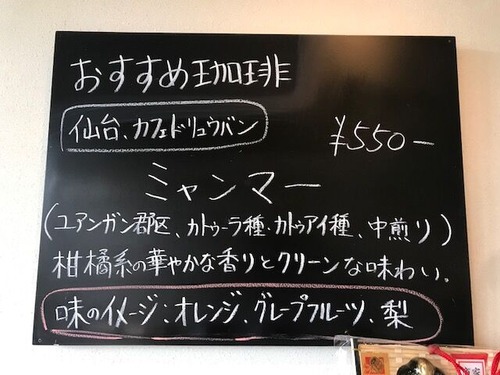 おすすめ珈琲
仙台、カフェドリュウバン
¥550-
ミャンマー
(ユアンガン郡区、カトゥーラ種、カトゥアイ種、中煎り)
柑橘系の華やかな香りとクリーンな味わい。
味のイメージ:オレンジ、グレープフルーツ、梨